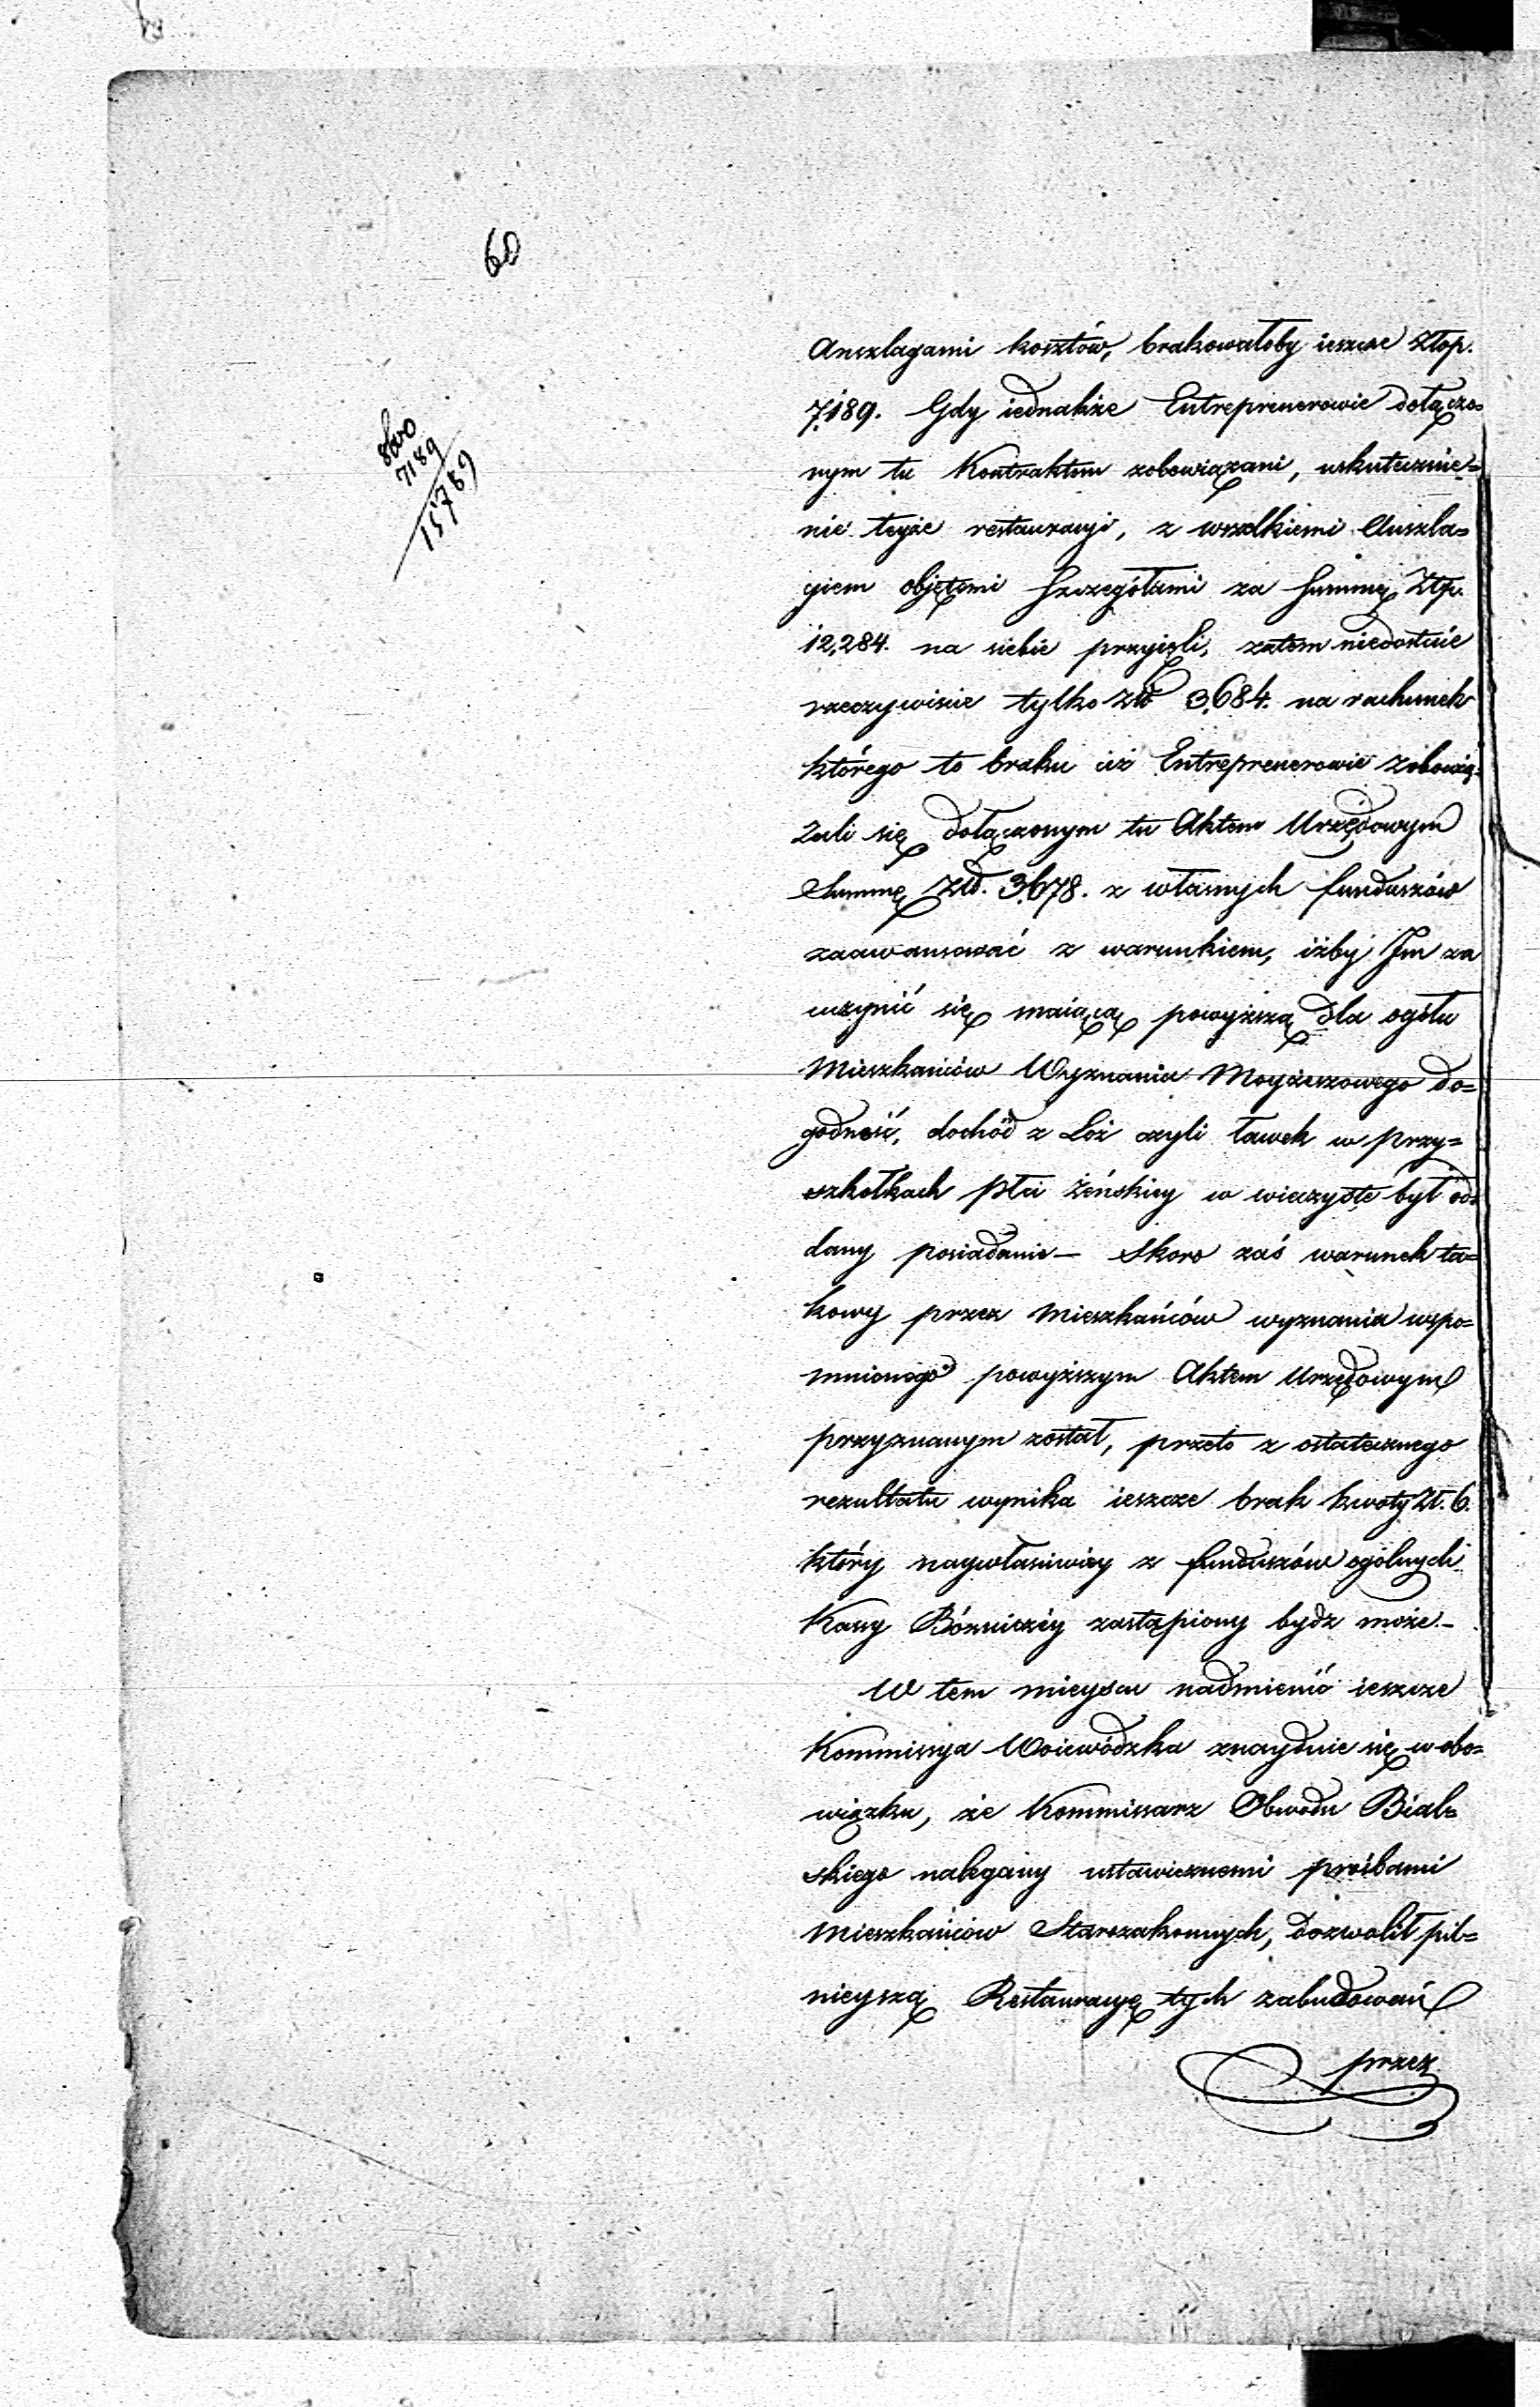 60
8600
7189
15789
Anszlagami kosztów, brakowałoby ieszcze Złop.
7,189. Gdy iednakże Entreprenerowie dołączo=
nym tu Kontraktem zobowiązani, uskutecznie=
nie teyże restauracyi, z wszelkiemi Anszla=
giem objętemi Szczegółami za Summę Złp.
12,284. na siebie przyięli, zatem niedostaie
rzeczywiście tylko złł 3,684. na rachunek
którego to braku iż Entreprenerowie zobowią=
zali się dołączonym tu Aktem Urzędowym
Summę Złł. 3,678. z własnych funduszów
zaawansować z warunkiem, iżby Im za
uczynić się maiącą powyższą dla ogółu
Mieszkańców Wyznania Moyżeszowego do=
godność, dochód z Loż czyli ławek w przy=
szkółkach płci żeńskiey w wieczyste był od=
dany posiadanie — Skoro zaś warunek ta=
kowy przez Mieszkańców wyznania wspo=
mnionego powyższym Aktem Urzędowym
przyznanym został, przeto z ostatecznego
rezultatu wynika ieszcze brak kwoty Zł. 6.
który naywłaściwiey z funduszów ogólnych
Kassy Bóżniczéy zastąpiony bydz może. —
W tem mieyscu nadmienić ieszcze
Kommissya Woiewódzka znayduie się w obo=
wiązku, że Kommissarz Obwodu Bial=
skiego nalegany ustawicznemi prośbami
Mieszkańców Starozakonnych, dozwolił pil=
nieyszą Restauracyę tych zabudowań
przez